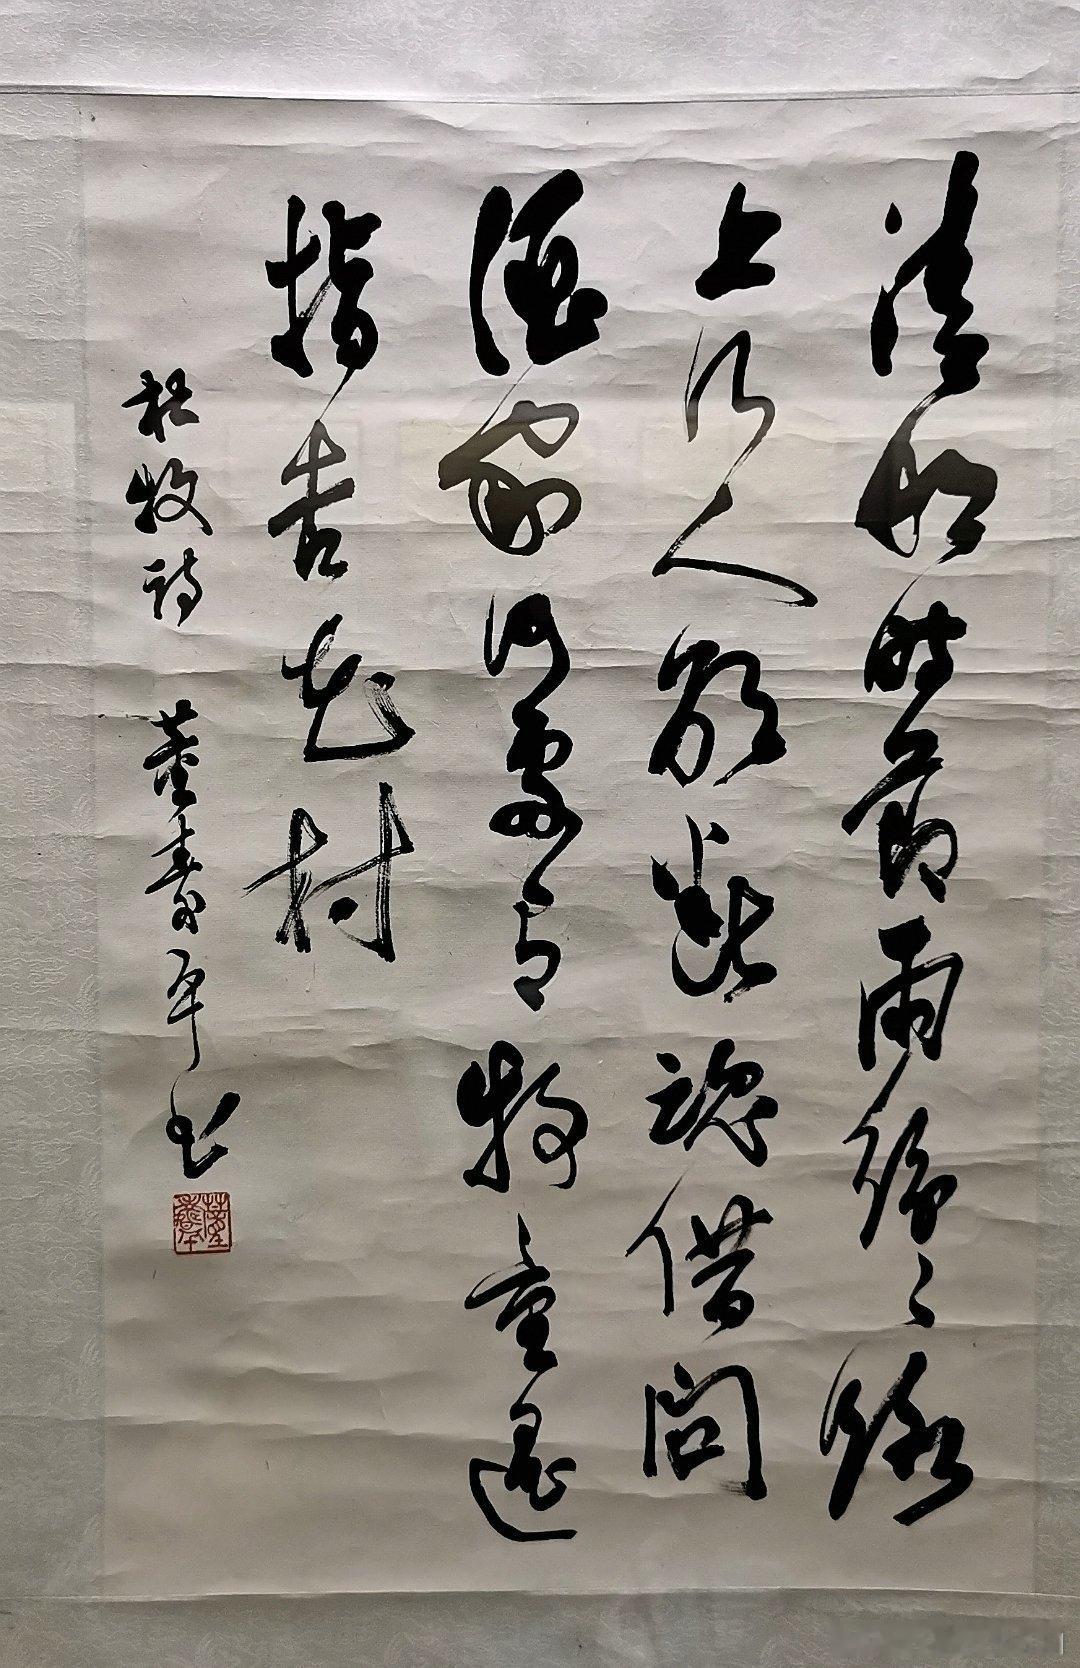 清明时节雨纷纷路
上行人欲断魂借问
酒家何处有牧童遥
指杏花村
杜牧诗 董寿平书
董寿平